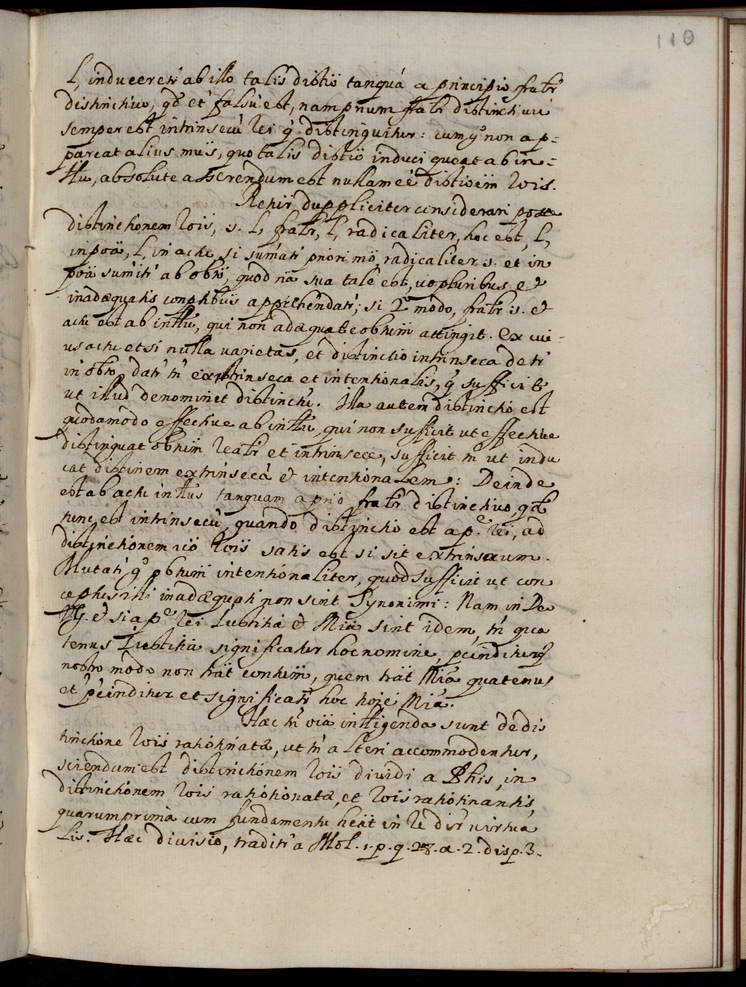 110
l, induceretr ab illo talis distio tanquá a principio fratr
distinctivo, qd et falsu est, nam pnum fratr distinctivu
semper est intrinsecu rei q distinguitur: cum go non ap-
pareat alius mus, quo talis distio induci queat ab in-
tllu, absolute asserendum est nullam eé distioem rois.
Respr dupliciter considerari posse
distinctionem rois, s. l, fratr, l, radicaliter, hoc est, l,
in poa, l, in actu, si sumatr priori mo, radicaliter s. et in
poa sumitr ab obto, quod na sua tale est, ut pluribus, et
inadæquatis conptibus apprehendatr; si 2o modo, fratr s. et
actu est ab intllu, qui non adæquate obtum attingit. Ex cui-
us actu etsi nulla varietas, et distinctio intrinseca detr
in obto, datr tn extrinseca et intentionalis, q sufficit
ut illud denominet distinctu. Illa autem distinctio est
quodamodo effective ab intllu, qui non sufficit ut effective
distinguat obtum realtr et intrinsece, sufficit tn ut indu
cat distinem extrinsecá et intentionalem: Deinde
est ab actu intllus tanquam a pnio fratr distinctivo, qd
tunc est intrinsecu, quando distinctio est a pe rei, ad
distinctionem uo rois satis est si sit extrinsecum.
Mutatr go obtum intentionaliter, quod sufficit ut con
ceptus illi inadæquati non sint Synonimi: Nam in De
et si a pe rei Iustitia et Mia sint idem, tn qua
tenus Iustitia significatur hoc nomine, pcinditurq
nostro modo non hat contum, quem hat Mia quatenus
et pcinditur et significatr hoc noie Mia.
Hæc tn oia intlligenda sunt de dis
tinctione rois ratiotinatæ, ut tn alteri accommodentur,
sciendum est distinctionem rois dividi a Phis, in
distinctionem rois ratiotinatæ, et rois ratiotinantis,
quarum prima cum fundamentu heat in re dir virtua
lis. Hæc divisio, traditr a Mol. 1. p. q. 28. a. 2. disp. 3.